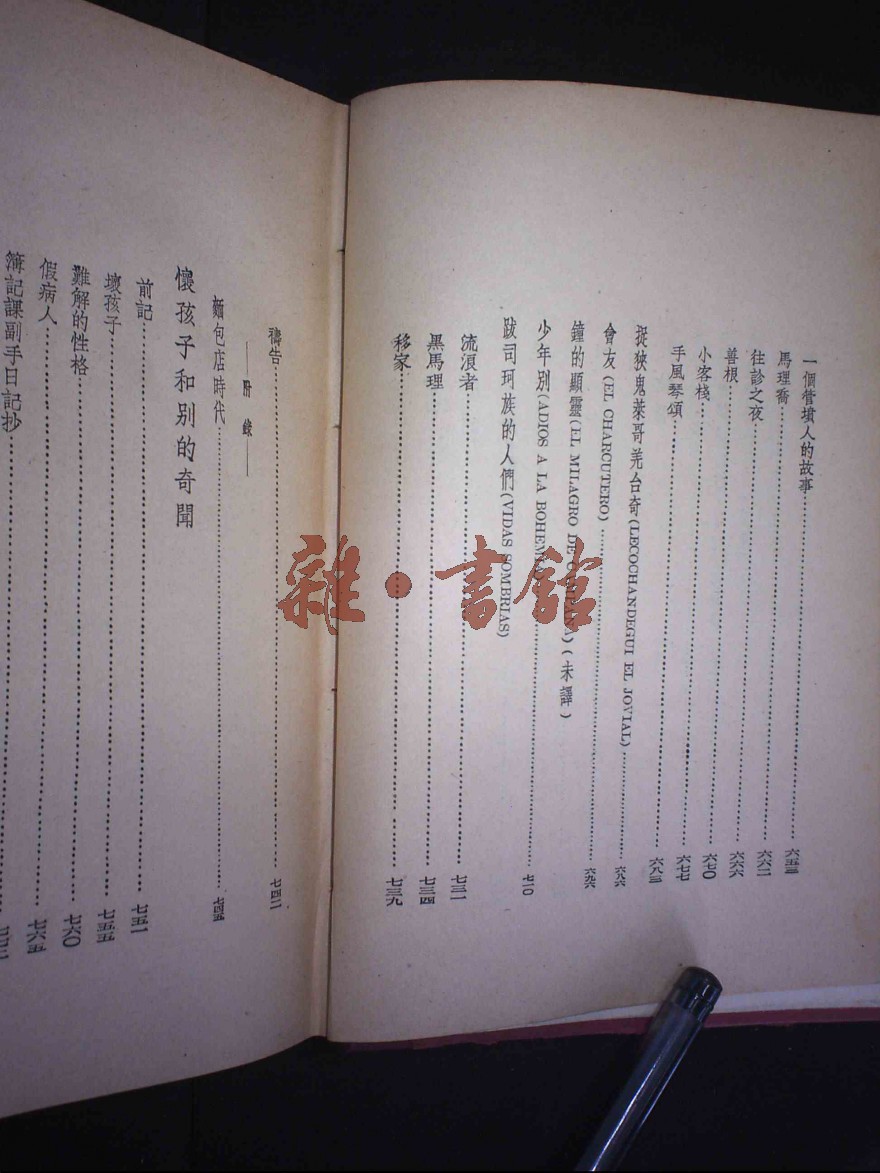 一個管墳人的故事……六五三
馬理喬……六六二
往診之夜……六六六
善根……六七〇
小客棧……六七七
手風琴頌……六八三
捉狹鬼萊哥羌台奇(LECOCHANDEGUI EL JOVIAL)……六八六
會友(EL CHARCUTERO)……六九六
鐘的顯靈(EL MILAGRO DE)(未譯)
少年別(ADIOS A LA BOHEMIA……七一〇
跋司珂族的人們(VIDAS SOMBRIAS)
流浪者……七三一
黑馬理……七三四
移家……七三九
禱告……七四二
——附錄——
麵包店時代……七四五
壞孩子和別的奇聞
前記……七五一
壞孩子……七五五
難解的性格……七六〇
假病人……七六五
簿記課副手日記抄……
雜·書館